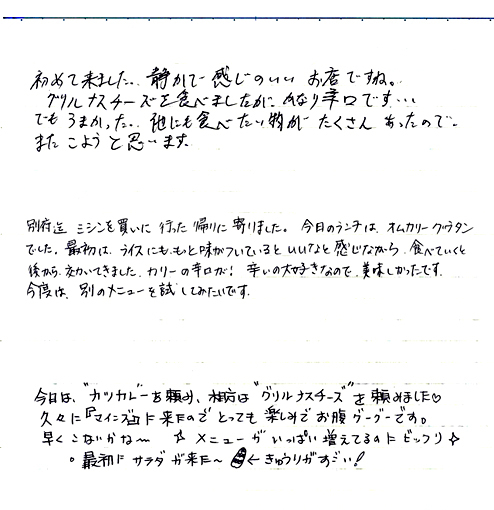 初めて来ました。静かで感じのいいお店ですね。
グリルナスチーズを食べましたがかなり辛口です…
でもうまかった。他にも食べたい物がたくさんあったので
またこようと思います。
別府迄ミシンを買いに行った帰りに寄りました。今日のランチは、オムカリーグラタン
でした。最初は、ライスにも、もっと味がついているといいなと感じながら、食べていくと
後から、きいてきました。カリーの辛口が！辛いの大好きなので、美味しかったです。
今度は、別のメニューを試してみたいです。
今日は、"カツカレー"を頼み、相方は"グリルナスチーズ"を頼みました♡
久々に『マイニズ』に来たのでとっても楽しみでお腹グーグーです。
早くこないかな〜 ☆ メニューがいっぱい増えてるのにビックリ☆
。最初にサラダが来た〜 ←きゅうりがすごい！